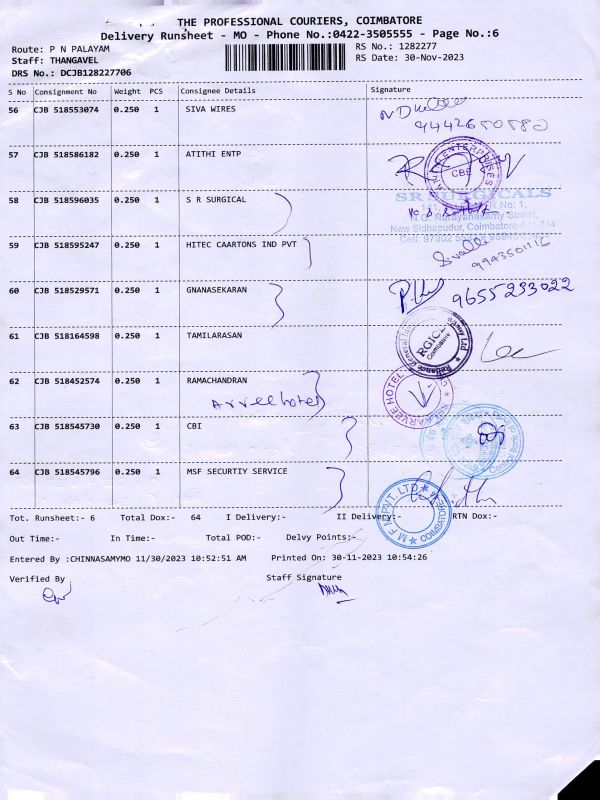 THE PROFESSIONAL COURIERS, COIMBATORE
Delivery Runsheet - MO - Phone No.:0422-3505555 - Page No.:6
Route: P N PALAYAM
RS No.: 1282277
Staff: THANGAVEL
RS Date: 30-Nov-2023
DRS No.: DCJB128227706
S No Consignment No Weight PCS Consignee Details Signature
56 CJB 518553074 0.250 1 SIVA WIRES
57 CJB 518586182 0.250 1 ATITHI ENTP
ENTERPRISES
CBE
58 CJB 518596035 0.250 1 S R SURGICAL
SR SURGICALS
No: 1,
N.G. Narayanasamy Street,
New Sidhapudur, Coimbatore
59 CJB 518595247 0.250 1 HITEC CAARTONS IND PVT
9943501116
60 CJB 518529571 0.250 1 GNANASEKARAN 9655293022
61 CJB 518164598 0.250 1 TAMILARASAN
RGICL
Coimbatore
62 CJB 518452574 0.250 1 RAMACHANDRAN
Arvee hotel
ARVEE HOTEL
63 CJB 518545730 0.250 1 CBI
64 CJB 518545796 0.250 1 MSF SECURTIY SERVICE
PVT. LTD
COIMBATORE
Tot. Runsheet:- 6 Total Dox:- 64 I Delivery:- II Delivery:- RTN Dox:-
Out Time:- In Time:- Total POD:- Delvy Points:-
Entered By :CHINNASAMYMO 11/30/2023 10:52:51 AM Printed On: 30-11-2023 10:54:26
Verified By Staff Signature